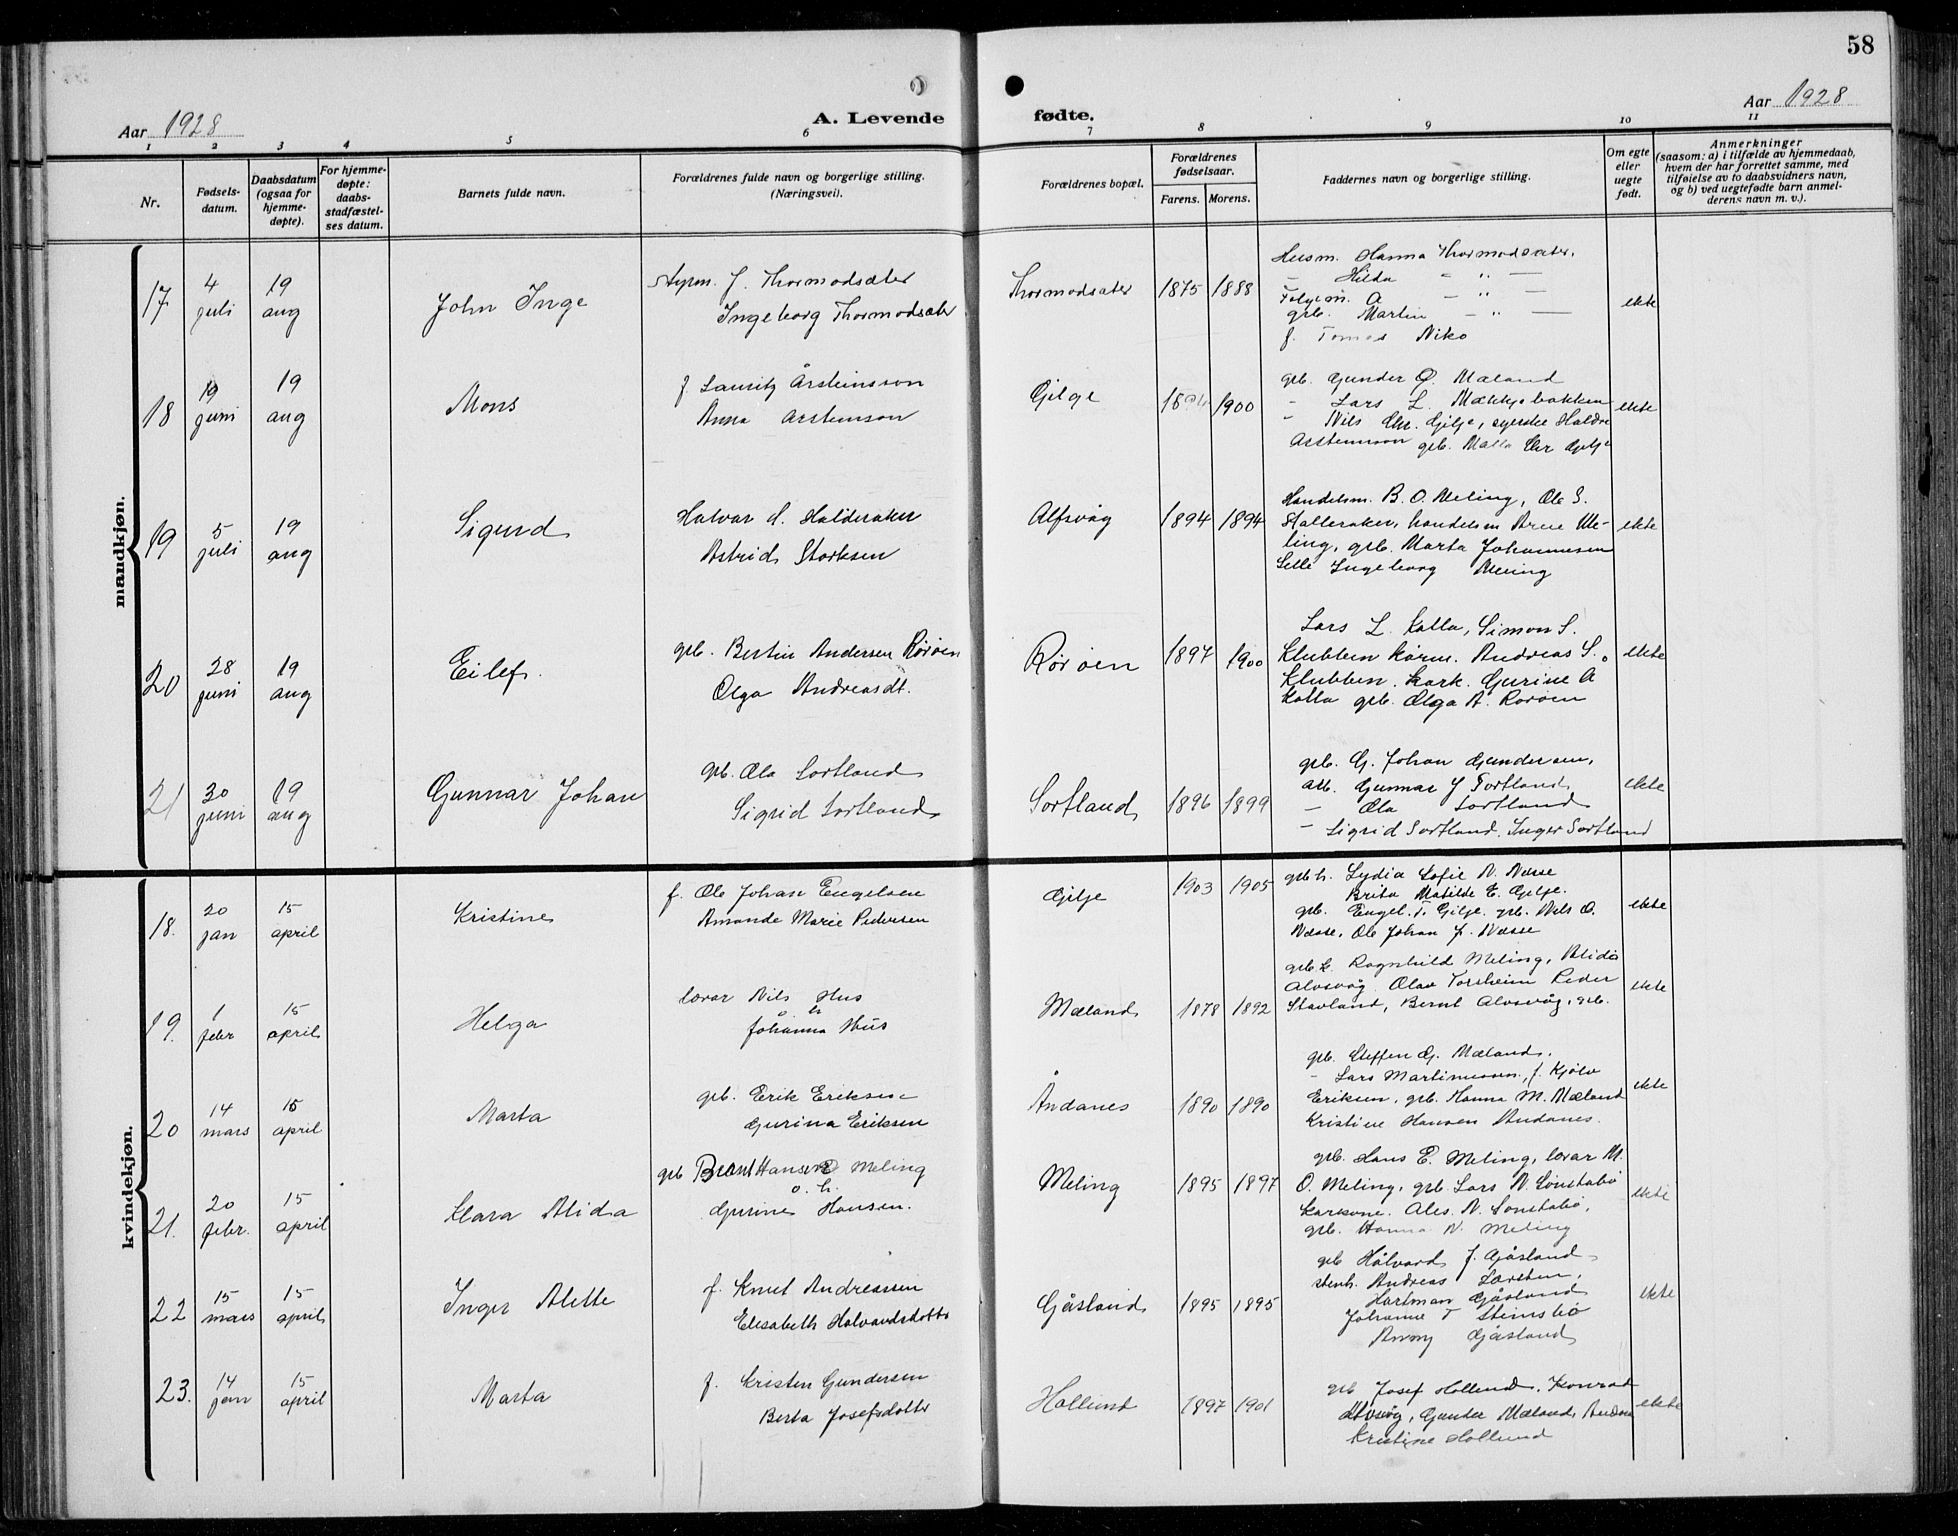 58
Aar 1928
A. Levende
fødte.
Aar 1928
1 2 3 4 5 6 7 8 9 10 11
Nr.
Fødsels-
datum.
Daabsdatum
(ogsaa for
hjemme-
døpte).
For hjemme-
døpte:
daabs-
stadfæstel-
ses datum.
Barnets fulde navn.
Forældrenes fulde navn og borgerlige stilling.
(Næringsvei).
Forældrenes bopæl.
Forældrenes
fødselsaar.
Farens. Morens.
Faddernes navn og borgerlige stilling.
Om egte
eller
uegte
født.
Anmerkninger
(saasom: a) i tilfælde av hjemmedaab,
hvem der har forrettet samme, med
tilføielse av to daabsvidners navn,
og b) ved uegtefødte barn anmel-
derens navn m. v.).
mandkjøn.
17 4 juli 19 aug
John Inge
f. Thormodsæter
Ingeborg Thormodsæter
Thormodsæter 1875 1888
Husm. Hanna Thormodsæter,
— Hilda — " —
A — " —
grb. Martin — " —
f. Tomas Niko
ekte
18 19 juni 19 aug
Mons
f. Lauritz Årsteinsson
Anna Arsteinson
Gilje 1900
grb. Gunder Ø. Mæland
" Lars L. Mækkjebakken
" Nils Chr. Gilje, syerske Haldre
Arsteinson grb. Malla Chr Gilje
ekte
19 5 juli 19 aug
Sigurd
Halvar H. Halderaker
Astrid Storksen
Alfsvåg 1894 1894
Handelsm. B. O. Meling, Ole S.
Halleraker, handelsm Arne Me-
ling, grb. Marta Johannesen
Selle Ingeborg Meling
ekte
20 28 juni 19 aug
Eilef.
grb. Bertin Andersen Rørøen
Olga Andreasdt.
Rørøen 1897 1900
Lars L. Kalla, Simon S.
Klubben Karm. Andreas S.
Klubben. Kark. Gurine A
Kalla grb. Olga A. Rørøen
ekte
21 30 juni 19 aug
Gunnar Johan
grb. Ola Sortland
Sigrid Sortland
Sortland 1896 1899
grb. G. Johan Gundersen,
arb. Gunnar J Sortland,
— Ola Sortland
— Sigrid Sortland, Inger Sortland
ekte
kvindekjøn.
18. 20 jan 15 april
Kristine
f. Ole Johan Engelsen
Amanda Marie Pedersen
Gilje 1903 1905
grb.h. Lydia Sofie N. Næsse
Brita Matilde E. Gilje.
grb. Engel. T. Gilje, grb. Nils O.
Næsse, Ole Johan J. Næsse
ekte
19. 1 febr 15 april
Helga
lærar Nils Hus
o. h
Johanna Hus
Mæland 1878 1892
grb.k. Ragnhild Meling, Alida
Alvsvåg. Olav Torsheim Peder
Stavland, Bernt Alvsvåg, grb.
ekte
20 14 mars 15 april
Marta
grb. Erik Eriksen
Gurina Eriksen
Åndanes 1890 1890
grb. Steffen G. Mæland,
— Lars Martinussen, f. Kjølv
Eriksen, grb. Hanna M. Mæland
Kristine Hansen Andanes.
ekte
21. 20 febr. 15 april
Klara Alida
grb Hansen Meling
o. h.
Gurine Hansen.
Meling 1895 1897
grb. Hans E. Meling, lærar M.
O. Meling, grb Lars N. Sønstabø
karkone. Ales. N. Sønstabø,
grb. Hanna N. Meling
ekte
22 15 mars 15 april
Inger Alette
f. Knut Andreassen
Elisabeth Halvardsdotter
Gåsland 1895 1895
grb Halvard J. Gåsland
stenh. Andreas Larsten,
Hartman Gåsland
Johanne T Steinsbø
Anny Gåsland
ekte
23. 14 jan 15 april
Marta
f. Kristen Gundersen
Berta Josefsdotter
Hollund 1897 1901
grb Josef Hollund, Konrad
Alvsvåg, Gunder Mæland, Andrea
Kristine Hollund
ekte